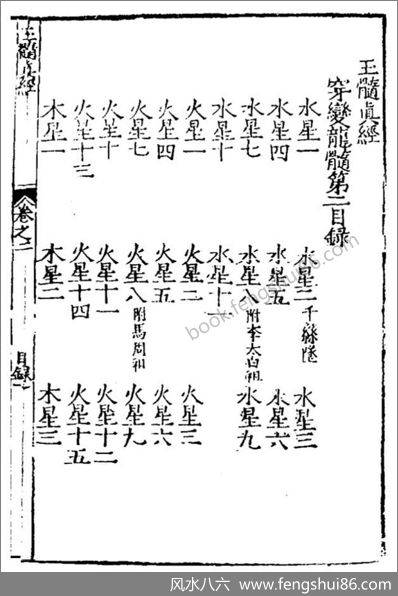 玉髓眞經
穿變龍髓第二目錄
水星一 水星二千絲墜 水星三
水星四 水星五 水星六
水星七 水星八附李太白祖 水星九
水星十 水星十一
火星一 火星二 火星三
火星四 火星五 火星六
火星七 火星八附馬周祖 火星九
火星十 火星十一 火星十二
火星十三 火星十四 火星十五
木星一 木星二 木星三
玉髓眞經 卷之二 目錄
book.fengshui86.com
风水八六 - www.fengshui86.com